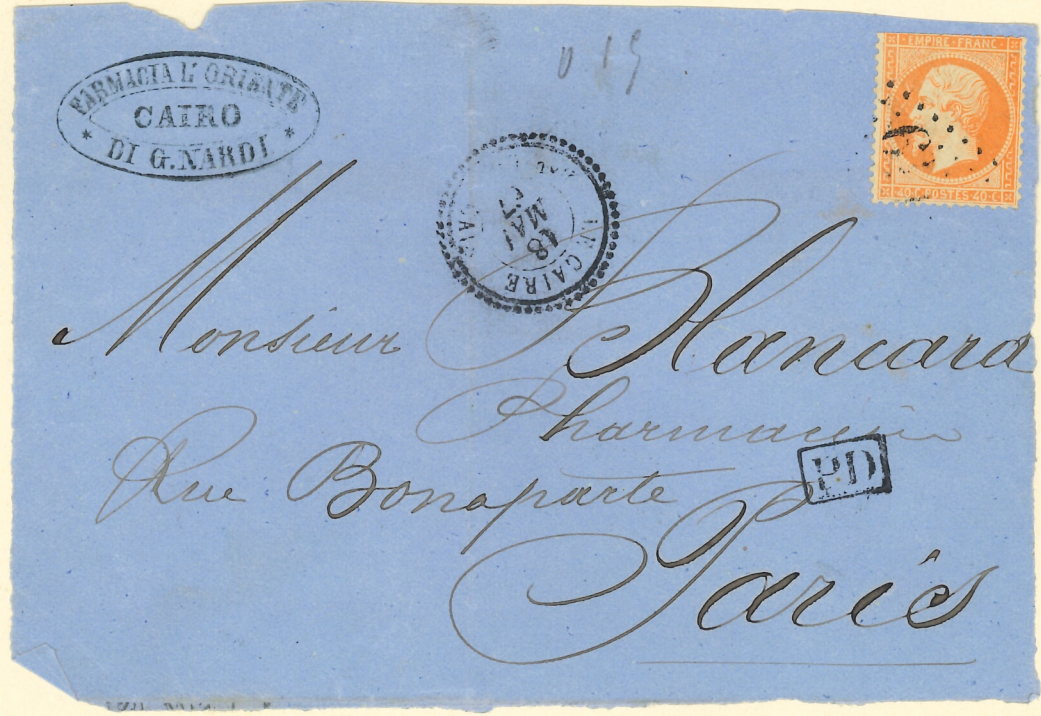 FARMACIA L'ORIENTE
CAIRO
* DI G. NARDI *
EMPIRE FRANC
40 C POSTES 40 C
LE CAIRE
18
MAI
67
Monsieur Blancard
Pharmacien
Rue Bonaparte
P.D
Paris